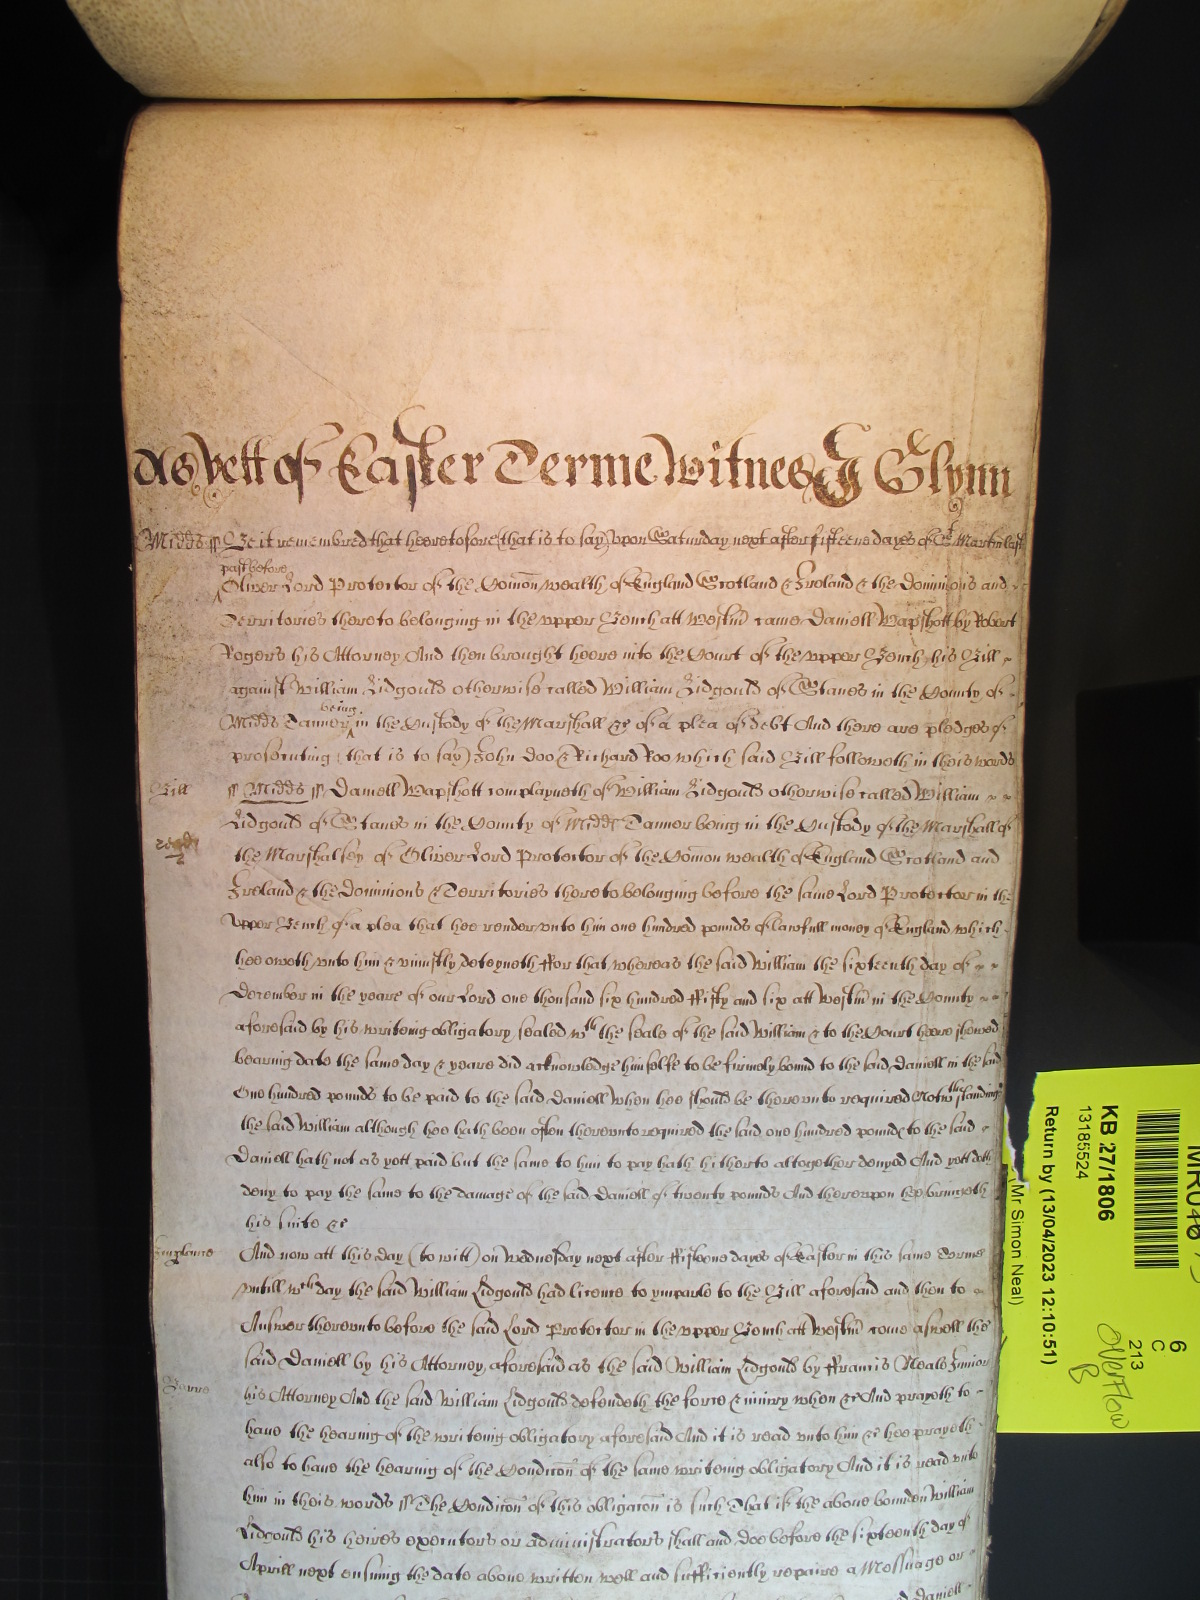 As yett of Easter Terme Witnes J Glynn
Midds ss Be it remembred that heeretofore (that is to say) upon Saturday next after fifteene dayes of St Martin last
past before
Oliver Lord Protector of the Com̄on wealth of England Scotland & Ireland & the Dominions and
Territories thereto belonging in the upper Bench att Westm̄ came Daniell Wapshott by Robert
Rogers his Attorney And then brought heere into the Court of the upper Bench his Bill
against William Lidgould otherwise called William Lidgould of Stanes in the County of
being
Midds Tanner in the Custody of the Marshall &c of a plea of debt And there are pledges of
prosecuting (that is to say) John Doo & Richard Roo which said Bill followeth in theis words
Bill ss Midds ss Daniell Wapshott complayneth of William Lidgould otherwise called William
Lidgould of Stanes in the County of Midds Tanner being in the Custody of the Marshall of
the Marshalsey of Oliver Lord Protector of the Com̄on wealth of England Scotland and
Ireland & the Dominions & Territories thereto belonging before the same Lord Protector in the
upper Bench of a plea that hee render unto him one hundred pounds of lawfull money of England which
hee oweth unto him & uniustly deteyneth ffor that whereas the said William the sixteenth day of
December in the yeare of our Lord one thousand six hundred ffifty and six att Westm̄ in the County
aforesaid by his writeing obligatory sealed wth the seale of the said William & to the Court heere shewed
bearing date the same day & yeare did acknowledge himselfe to be firmely bound to the said Daniell in the said
One hundred pounds to be paid to the said Daniell when hee should be thereunto required Notwthstanding
the said William although hee hath been often thereunto required the said one hundred pounds to the said
Daniell hath not as yett paid but the same to him to pay hath hitherto altogether denyed And yett doth
deny to pay the same to the damage of the said Daniell of twenty pounds And thereupon hee bringeth
his suite &c
Imparlance And now att this day (to witt) on Wednesday next after ffifteene dayes of Easter in this same Terme
untill wch day the said William Lidgould had licence to imparle to the Bill aforesaid and then to
Answer thereunto before the said Lord Protector in the upper Bench att Westm̄ come aswell the
said Daniell by his Attorney aforesaid as the said William Lidgould by ffrancis Neale Junior
Barre his Attorney And the said William Lidgould defendeth the force & iniury when &c And prayeth to
have the hearing of the writeing obligatory aforesaid And it is read unto him &c hee prayeth
also to have the hearing of the Condic̄on of the same writeing obligatory And it is read unto
him in theis words ss The Condic̄on of this obligac̄on is such That if the above bounden William
Lidgould his heires executors or administrators shall and doe before the sixteenth day of
Aprill next ensuing the date above written well and sufficiently repaire a Messuage or
Daniell
KB 27/1806
13185524
Return by (13/04/2023 12:10:51)
Mr Simon Neal)
6
C
213
Overflow
B